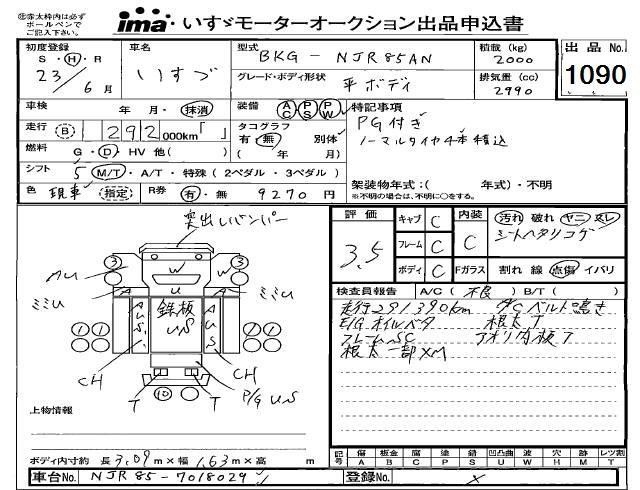 ㊟赤太枠内は必ず
ボールペンで
ご記入下さい。
ima いすゞモーターオークション出品申込書
初度登録 車名 型式 BKG - NJR85AN 積載 (kg) 2000 出品 No.
S ・ H ・ R 23 / 6 月 いすゞ グレード・ボディ形状 平ボディ 排気量 (cc) 2990 1090
車検 年 月・抹消 装備 AC PS PW 特記事項
PG付き
走行 (B) 292 000km「 」 タコグラフ 有・無 別体 ノーマルタイヤ4本積込
燃料 G・D・HV 他( ) ( 年 月)
シフト 5 M/T・A/T・特殊(2ペダル・3ペダル) 架装物年式:( 年式)・不明
※不明の場合は、不明に○をする。
色 現車 (指定) R券 有・無 9270 円
突出しバンパー
評価 3.5 キャブ C 内装 C 汚れ 破れ ヤニ
フレーム C シートヘタリコゲ
ボディ C Fガラス 割れ 線 点傷 イバリ
3 W 3
AU W W
ミミU A U A ミミU
鉄板
US
AUS AUS
CH CH
T 10 T P/G US
検査員報告 A/C( 不良 ) B/T( )
走行291,390km A/Cベルト鳴き
E/Gオイルベタ 根太T
フレームSC アオリ内板T
根太一部XM
上物情報
ボディ内寸約 長 3.09 m×幅 1.63 m×高 m
記号 傷 板金 腐 塗 錆 凹凸曲 波 穴 跡 レツ割
A B C P S U W H M T
車台No. NJR85-7018029 登録No. ×